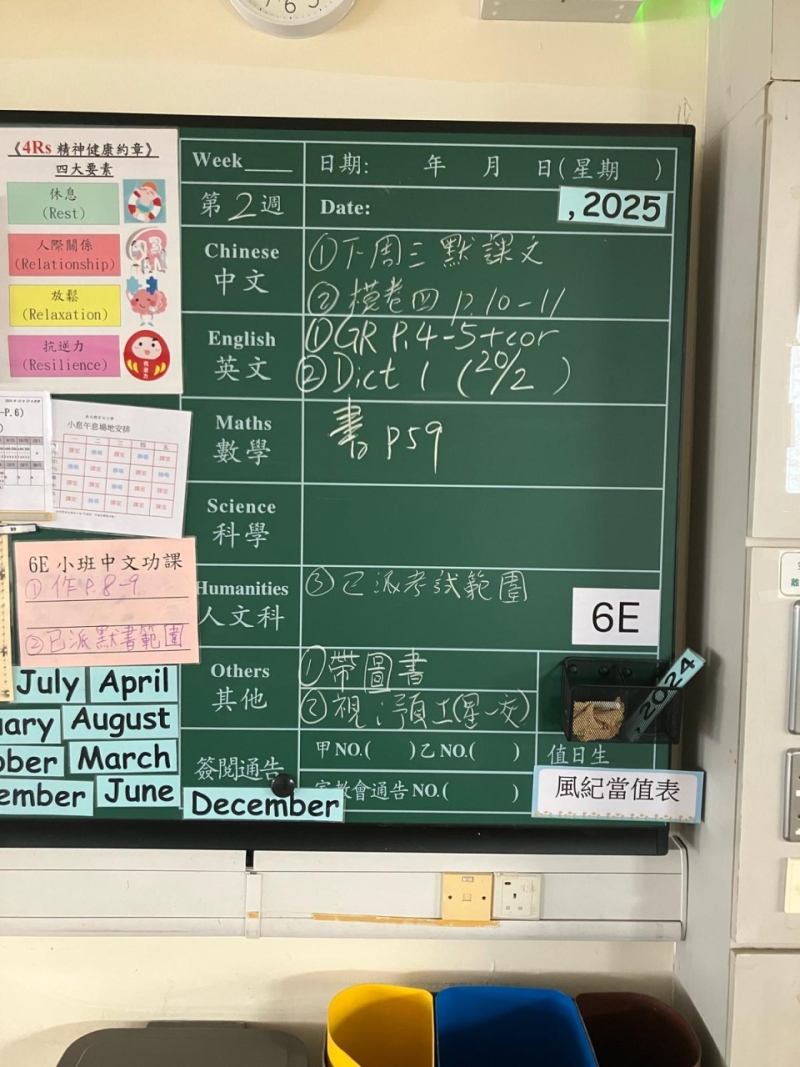 《4Rs 精神健康約章》
四大要素
休息
(Rest)
人際關係
(Relationship)
放鬆
(Relaxation)
抗逆力
(Resilience)
-P.6)
小息午息場地安排
6E 小班中文功課
①作P.8-9
②已派默書範圍
July
April
uary
August
ober
March
ember
June
December
Week
日期: 年 月 日(星期 )
第2週
Date:
,2025
Chinese
中文
①下周三默課文
②模卷四 P.10-11
English
英文
①GR P.4-5+cor
②Dict 1 (20/2)
Maths
數學
書 P59
Science
科學
Humanities
人文科
③已派考試範圍
6E
Others
其他
①帶圖書
②視:預工(星一交)
,2024
簽閱通告
甲NO.( )乙NO.( )
教會通告NO.( )
值日生
風紀當值表